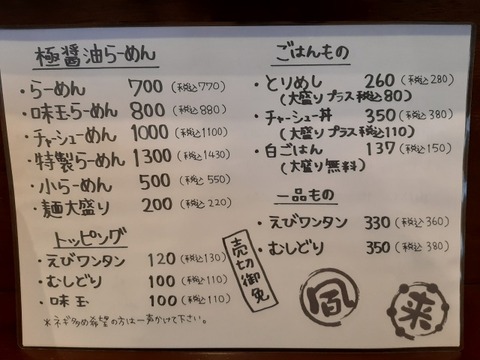 極醤油らーめん
・らーめん 700 (税込770)
・味玉らーめん 800 (税込880)
・チャーシューめん 1000 (税込1100)
・特製らーめん 1300 (税込1430)
・小らーめん 500 (税込550)
・麺大盛り 200 (税込220)
トッピング
・えびワンタン 120 (税込130)
・むしどり 100 (税込110)
・味玉 100 (税込110)
*ネギ多め希望の方は一声かけて下さい。
ごはんもの
・とりめし 260 (税込280)
(大盛りプラス税込80)
・チャーシュー丼 350 (税込380)
(大盛りプラス税込110)
・白ごはん 137 (税込150)
(大盛り無料)
一品もの
・えびワンタン 330 (税込360)
・むしどり 350 (税込380)
売切御免
来